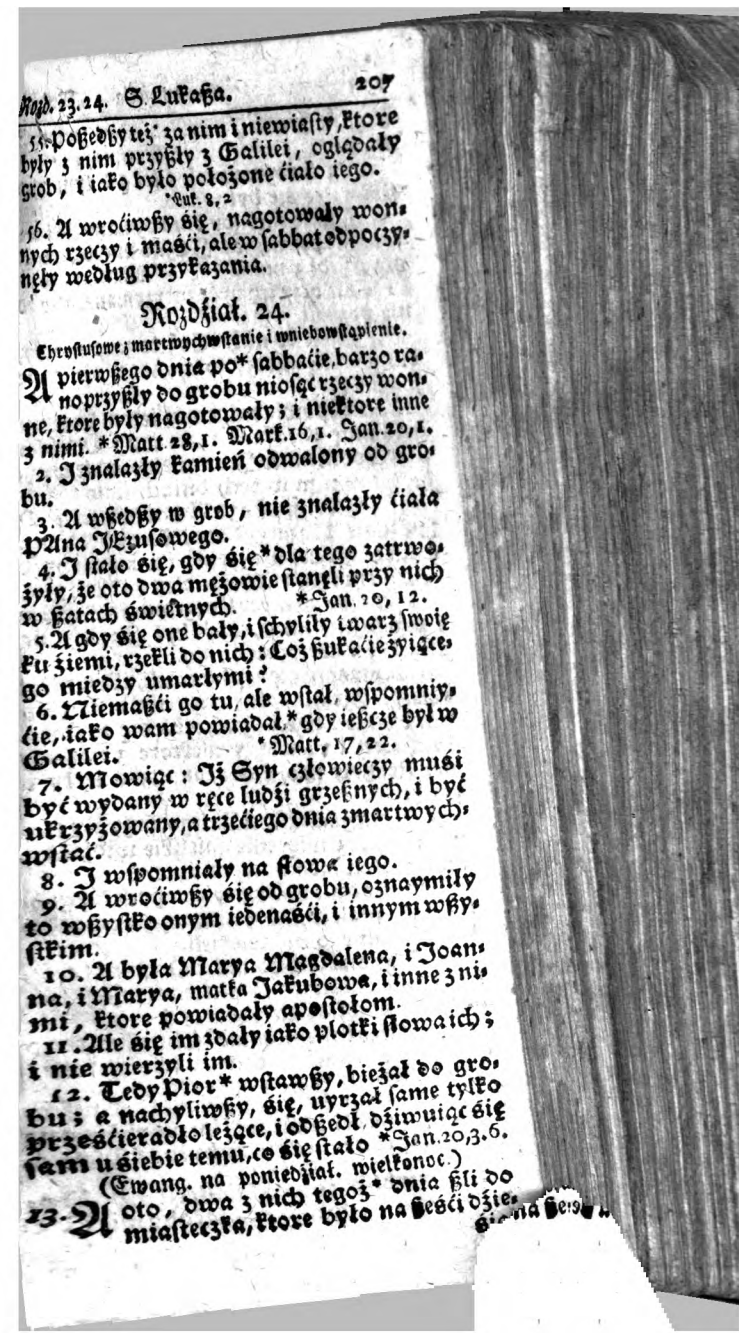 Rozd. 23.24. S. Lukaßa. 207
55. Poßedßy też* za nim i niewiasty, ktore
były z nim przyßły z Galilei, oglądały
grob, i iako było położone ćiało iego.
*Luk. 8, 2
56. A wroćiwßy śię, nagotowały won-
nych rzeczy i maśći, ale w sabbat odpoczy-
nęły według przykazania.
Rozdźiał. 24.
Chrystusowe z martwychwstanie i wniebowstąpienie.
A pierwßego dnia po* sabbaćie, barzo ra-
no przyßły do grobu niosąc rzeczy won-
ne, ktore były nagotowały; i niektore inne
z nimi. *Matt. 28, 1. Mark. 16, 1. Jan. 20, 1.
2. I znalazły kamień odwalony od gro-
bu.
3. A wßedßy w grob, nie znalazły ćiała
PAna JEzusowego.
4. I stało śię, gdy śię* dla tego zatrwo-
żyły, że oto dwa mężowie stanęli przy nich
w ßatach świetnych. *Jan. 20, 12.
5. A gdy śię one bały, i schyliły twarz swoię
ku źiemi, rzekli do nich: Coż ßukaćie żyiące-
go miedzy umarłymi?
6. Niemaßći go tu, ale wstał, wspomniy-
ćie, iako wam powiadał,* gdy ießcze był w
Galilei. *Matt. 17, 22.
7. Mowiąc: Iż Syn człowieczy muśi
być wydany w ręce ludźi grzeßnych, i być
ukrzyżowany, a trzećiego dnia zmartwych-
wstać.
8. I wspomniały na słowa iego.
9. A wroćiwßy śię od grobu, oznaymiły
to wßystko onym iedenaśći, i innym wßy-
stkim.
10. A była Marya Magdalena, i Joan-
na, i Marya, matka Jakubowa, i inne z ni-
mi, ktore powiadały apostołom.
11. Ale śię im zdały iako plotki słowa ich;
i nie wierzyli im.
12. Tedy Piotr* wstawßy, bieżał do gro-
bu; a nachyliwßy, śię, uyrzał same tylko
prześćieradło leżące, i odßedł, dźiwuiąc śię
sam u siebie temu, co śię stało *Jan. 20, 3. 6.
(Ewang. na poniedźiał. wielkonoc.)
13. A oto, dwa z nich tegoż* dnia ßli do
miasteczka, ktore było na ßeśći dźie-